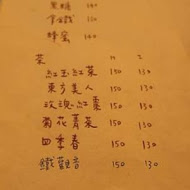 黑糖 140
蜂蜜 140
茶
紅玉紅茶 150 130
東方美人 150 130
玫瑰紅棗 150 130
菊花菁菜 150 130
四季春 150 130
鐵觀音 150 130